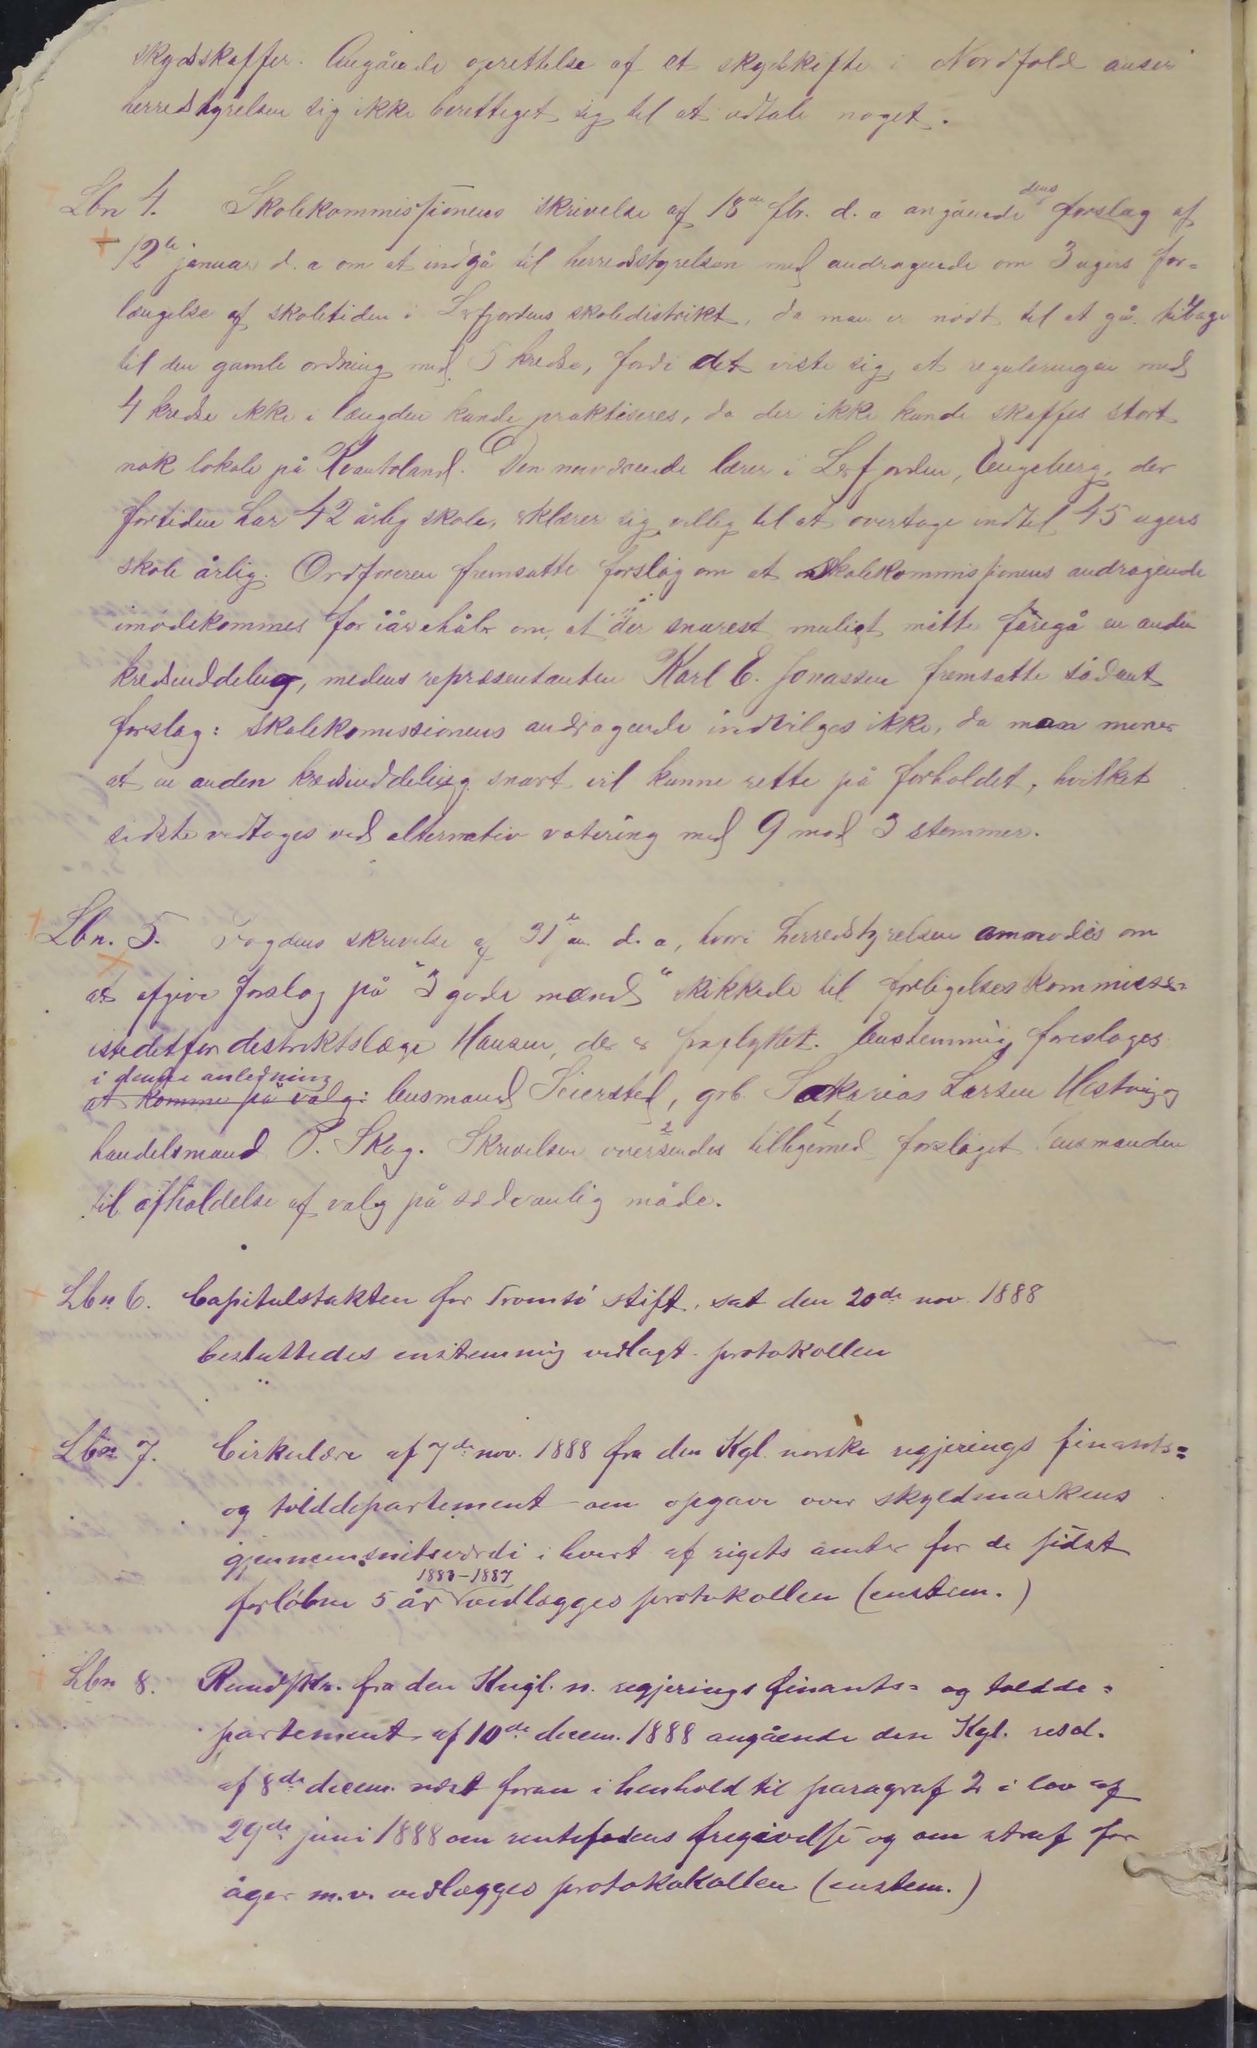 skydsskaffer. Angående oprettelse af et skydskifte i Nordfold anser
herredstyrelsen sig ikke berettiget sig til at udtale noget.
Lbn 4. Skolekommissionens skrivelse af 18de fbr. d. a angående dens forslag af
12te januar d. a om at indgå til herredsstyrelsen med andragende om 3 ugers for=
længelse af skoletiden i Lerfjordens skoledistrikt, da man er nødt til at gå tilbage
til den gamle ordning med 5 kredse, fordi det viste sig, at reguleringen med
4 kredse ikke i længden kunde praktiseres, da der ikke kunde skaffes stort
nok lokale på Kvantoland. Den nuværende lærer i Lerfjorden, Engeberg, der
fortiden har 42 årlig skole, erklærer sig villig til at overtage indtil 45 ugers
skole årlig. Ordføreren fremsatte forslag om at skolekommissionens andragende
imødekommes for iår ehåb om, at der snarest muligt måtte foregå en anden
kredsinddeling, medens repræsentanten Karl E. Jonassen fremsatte sådant
forslag: skolekomissionens andragende indvilges ikke, da man mener
at en anden kredsinddeling snart vil kunne rette på forholdet, hvilket
sidste vedtoges ved alternativ votering med 9 mod 3 stemmer.
Lbn. 5. Fogdens skrivelse af 31te jan. d. a, hvori herredstyrelsen anmodes om
at afgive forslag på "3 gode mænd" skikkede til forligelseskommiss=
istedetfor distriktslæge Hansen, der er fraflyttet. Enstemmig foresloges
i denne anledning
at komme på valg: lensmand Seiersted, grb. Sakarias Larsen Hestvig og
handelsmand P. Skog. Skrivelsen oversendes tilligemed forslaget lensmanden
til afholdelse af valg på sædvanlig måde.
Lbn 6. Capitulstakten for Tromsö stift, sat den 20de nov. 1888
besluttedes enstemmig vedlagt protokollen
Lbn 7. Cirkulære af 7de nov. 1888 fra den Kgl. norske regjerings finants=
og tolddepartement om opgave over skyldmarkens
gjennemsnitsværdi i hvert af rigets amter for de sidst
forløbne 5 år 1883-1887 vedlægges protokollen (enstem.)
Lbn 8. Rundskr. fra den Kngl. n. regjerings finants= og toldde=
partement af 10de decem. 1888 angående den Kgl. resol.
af 8de decem. næst foran i henhold til paragraf 2 i lov af
29de juni 1888 om rentefodens frigivelse og om straf for
åger m.v. vedlægges protokokollen (enstem.)